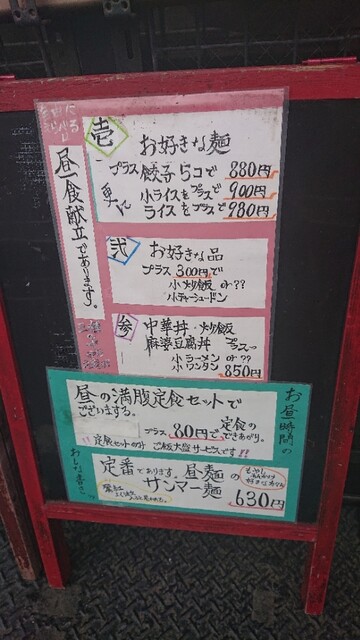 昼食献立であります。
壱
お好きな麺
プラス餃子5コで 880円
更に 小ライスをプラスで 900円
ライスをプラスで 930円
弐
お好きな品
プラス300円で
小炒飯 or ??
小チャーシュードン
参
中華丼・炒飯
麻婆豆腐丼 プラス
小ラーメン or ??
小ワンタン 850円
お昼時間の
昼の満腹定食セットで
ございまする。
プラス 80円で、定食の
できあがり。
!!定食セットのみ ご飯大盛サービスです!!
定番であります。昼麺の
サンマー麺 630円
もやし